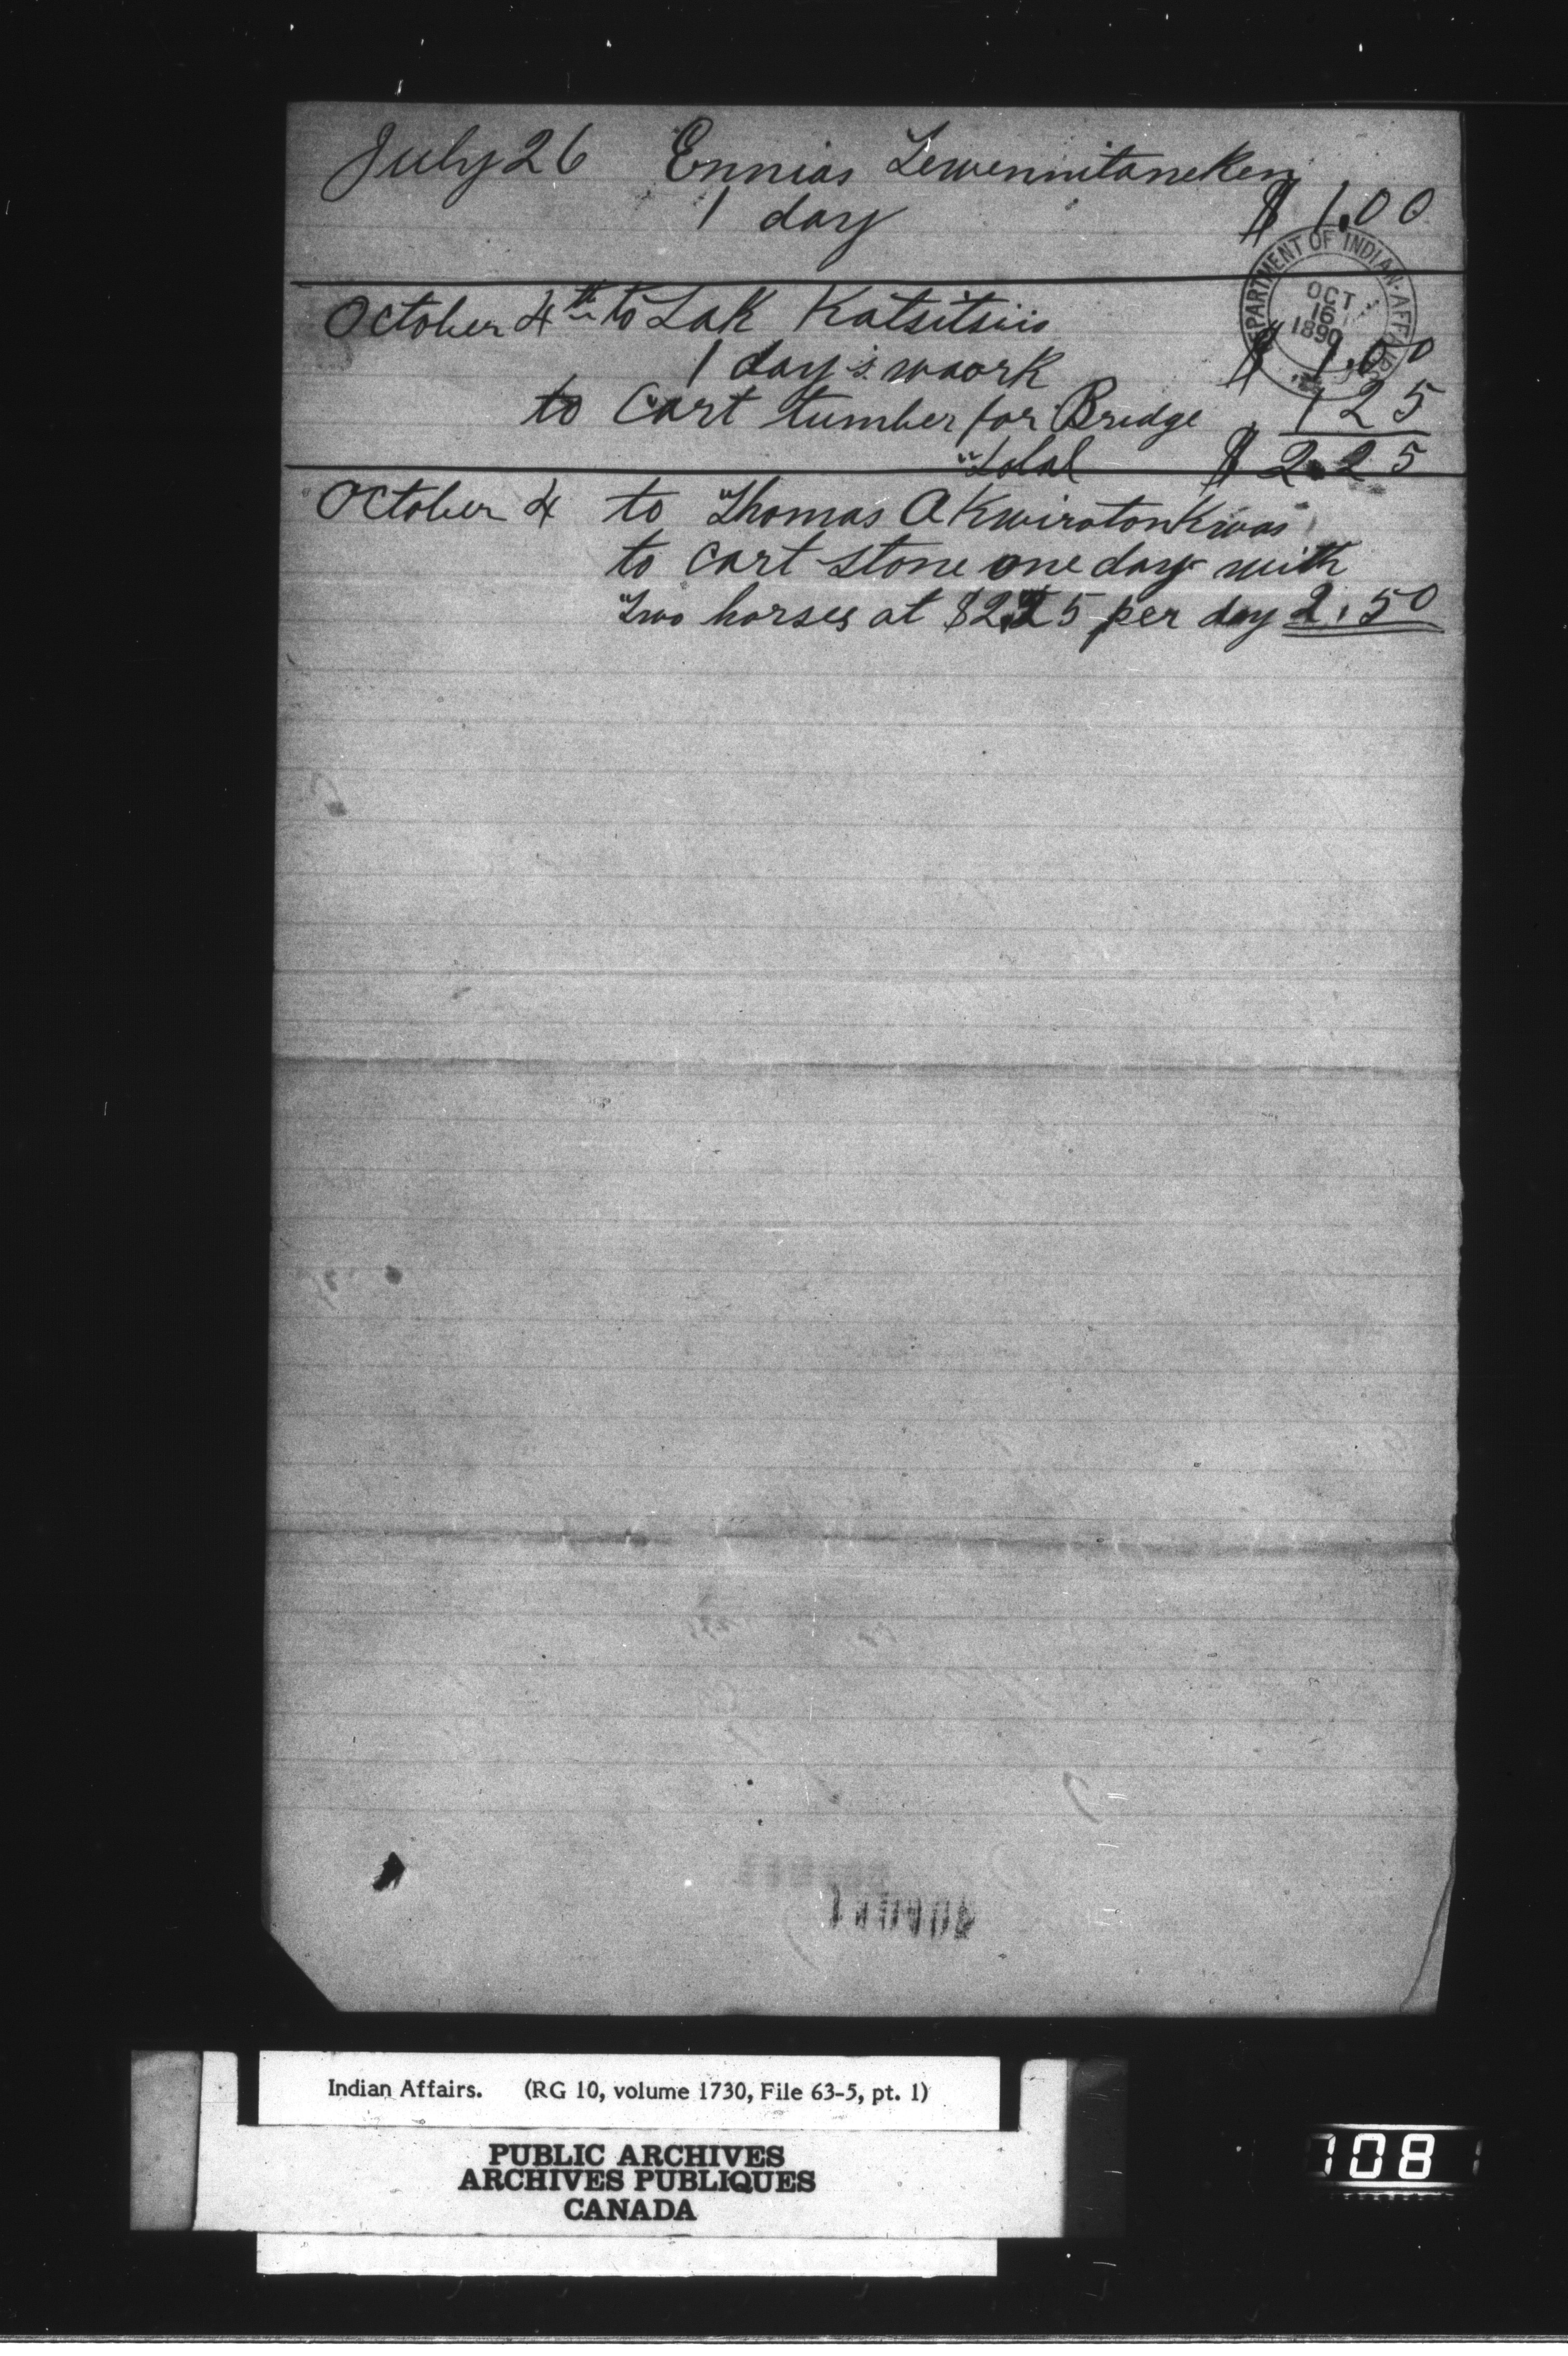 July 26 Ennias Tewennitaneken
1 day $ 1.00
DEPARTMENT OF INDIAN AFFAIRS
OCT
16
1890
October 4th to Sak Katsitsiio
1 day's waork $ 1.00
to Cart tumber for Bridge 1 25
Total $ 2.25
October 4 to Thomas Akwiratonkwas
to Cart stone one day with
Two horses at $2.25 per day 2.50
Indian Affairs. (RG 10, volume 1730, File 63-5, pt. 1)
PUBLIC ARCHIVES
ARCHIVES PUBLIQUES
CANADA
108